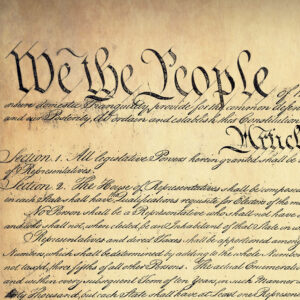 We the People of
insure domestic Tranquility, provide for the common defence
and our Posterity, do ordain and establish this Constitution
Article
Section 1. All legislative Powers herein granted shall be
of Representatives.
Section 2. The House of Representatives shall be composed
in each State shall have Qualifications requisite for Electors of the most
No Person shall be a Representative who shall not have
and who shall not, when elected, be an Inhabitant of that State in
Representatives and direct Taxes shall be apportioned among
Numbers, which shall be determined by adding to the whole Number
not taxed, three fifths of all other Persons. The actual Enumeration
and within every subsequent Term of ten Years, in such Manner
thirty Thousand, but each State shall have at Least one Representative